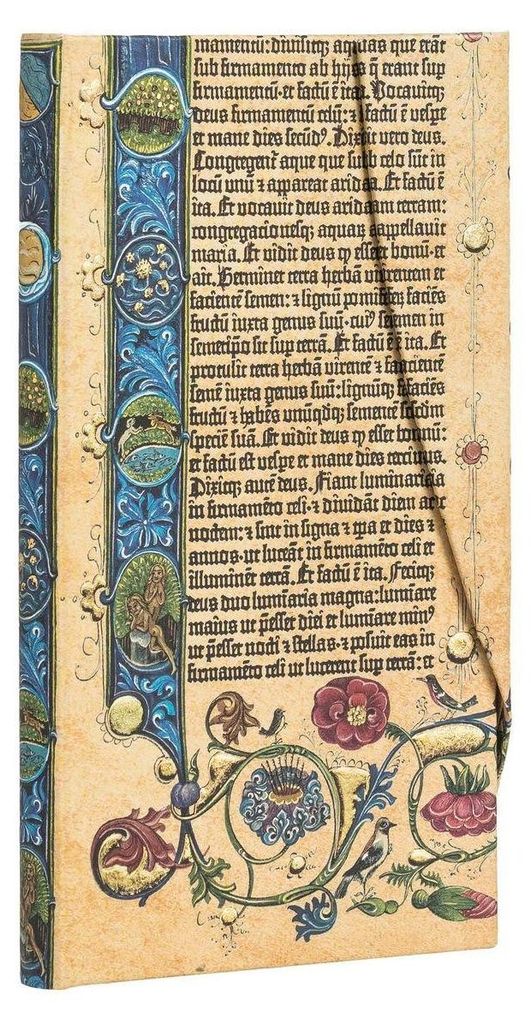 mamentū: divisitq; aquas que erāt
sub firmamento ab hijs q̄ erant sup
firmamentū· et factū ē ita. Vocavitq;
deus firmamentū celū: ⁊ factū ē vespe
et mane dies secūd⁹. Dixit vero deus.
Congregent̄ aque que sub celo sūt in
locū unū ⁊ appareat arida. Et factū ē
ita. Et vocavit deus aridam terram:
congregacionesq; aquaꝝ appellavit
maria. Et vidit deus ꝙ esset bonū· et
ait. Germinet terra herbā virentem et
facientē semen: ⁊ lignū pomiferū faciēs
fructū iuxta genus suū· cui⁹ semen in
semetipō sit sup terrā. Et factū ē ita. Et
protulit terra herbā virentē ⁊ facientē
semē iuxta genus suū: lignūq; faciēs
fructū ⁊ habēs unūqdq; sementē scdm
speciē suā. Et vidit deus ꝙ esset bonū:
et factū est vespe et mane dies tercius.
Dixitq; autē deus. Fiant luminaria
in firmamēto celi· ⁊ dividāt diem ac
noctem: ⁊ sint in signa ⁊ tpa et dies ⁊
annos· ut luceāt in firmamēto celi et
illuminēt terrā. Et factū ē ita. Fecitq;
deus duo luminaria magna: luminare
maius ut pesset diei et luminare min⁹
ut pesset nocti ⁊ stellas· ⁊ posuit eas in
firmamēto celi ut lucerent sup terrā: et